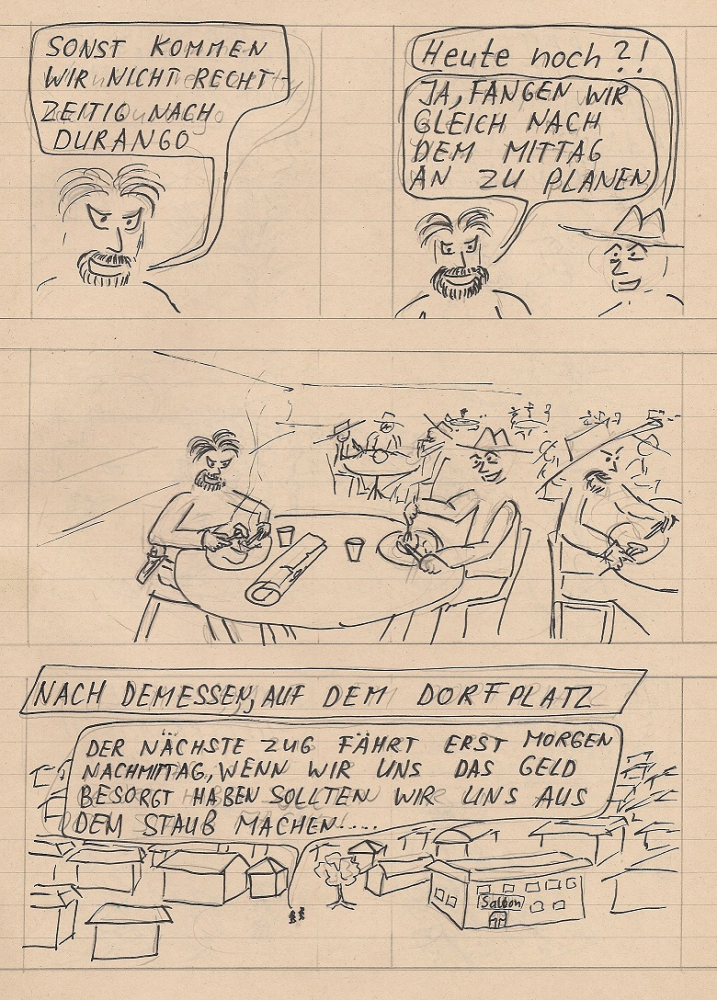 SONST KOMMEN
WIR NICHT RECHT-
ZEITIG NACH
DURANGO
Heute noch?!
JA, FANGEN WIR
GLEICH NACH
DEM MITTAG
AN ZU PLANEN
NACH DEM ESSEN, AUF DEM DORFPLATZ
DER NÄCHSTE ZUG FÄHRT ERST MORGEN
NACHMITTAG, WENN WIR UNS DAS GELD
BESORGT HABEN SOLLTEN WIR UNS AUS
DEM STAUB MACHEN....
Saloon